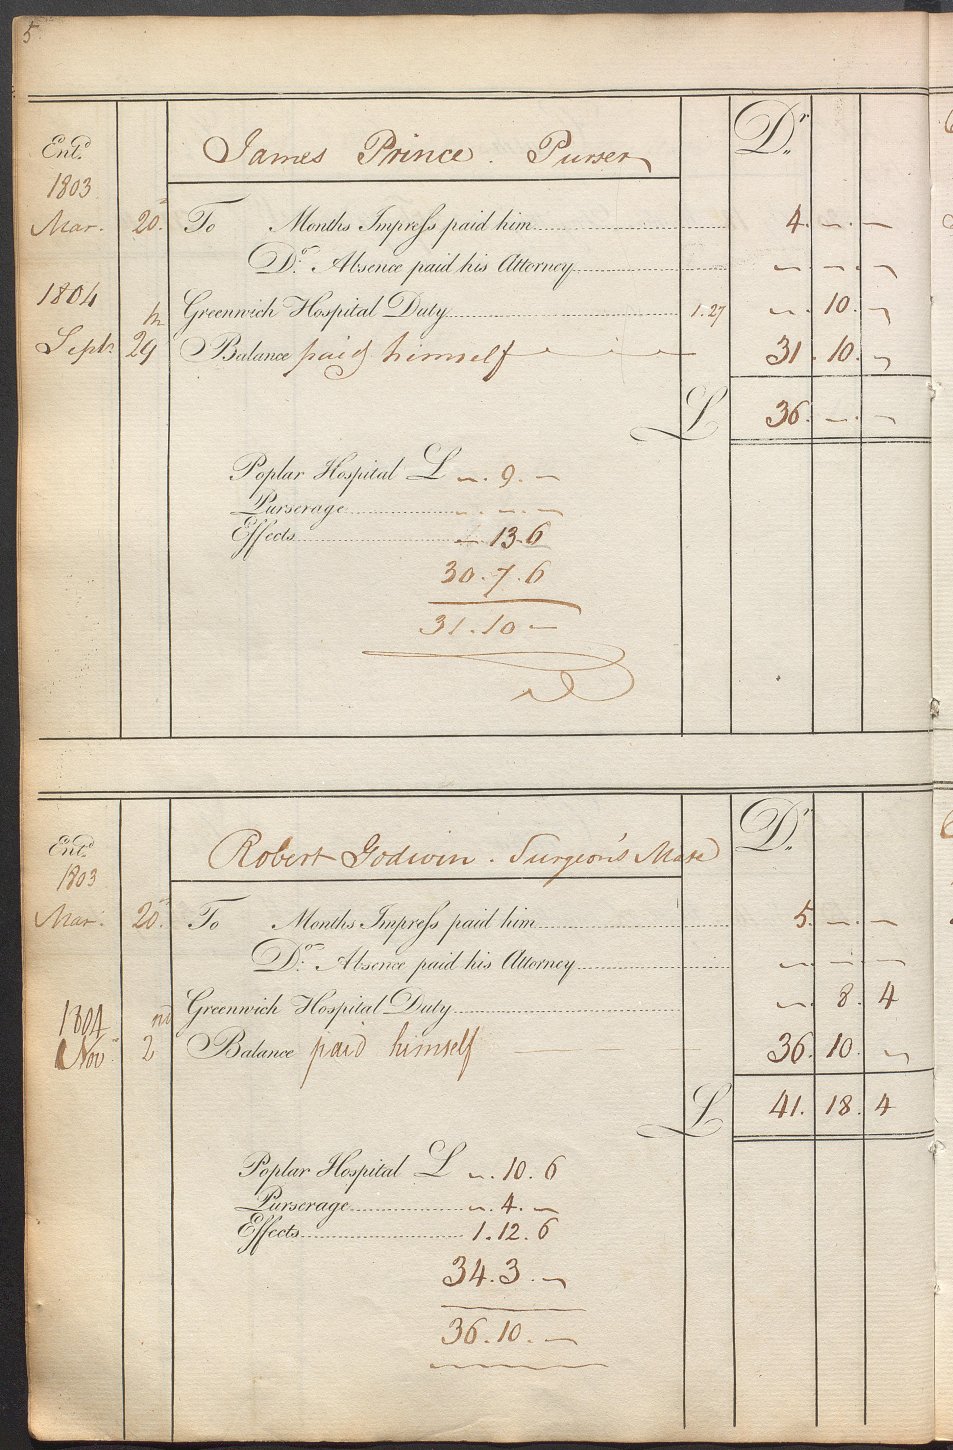 5
James Prince. Purser Dr.
Entd.
1803
Mar. 20. To Months Impress paid him 4. — . —
Do. Absence paid his Attorney — — —
1804 Greenwich Hospital Duty 1.27 — . 10. —
Septr. 29 Balance paid himself 31. 10. —
L 36. — . —
Poplar Hospital L — . 9. —
Purserage — . — . —
Effects — 13.6
30.7.6
31.10 —
Robert Godwin. Surgeon's Mate Dr.
Entd.
1803
Mar. 20. To Months Impress paid him 5. — . —
Do. Absence paid his Attorney — . — . —
1804 Greenwich Hospital Duty — . 8. 4
Nov. 2nd Balance paid himself 36. 10. —
L 41. 18. 4
Poplar Hospital L — . 10. 6
Purserage — . 4. —
Effects 1. 12. 6
34. 3. —
36. 10. —